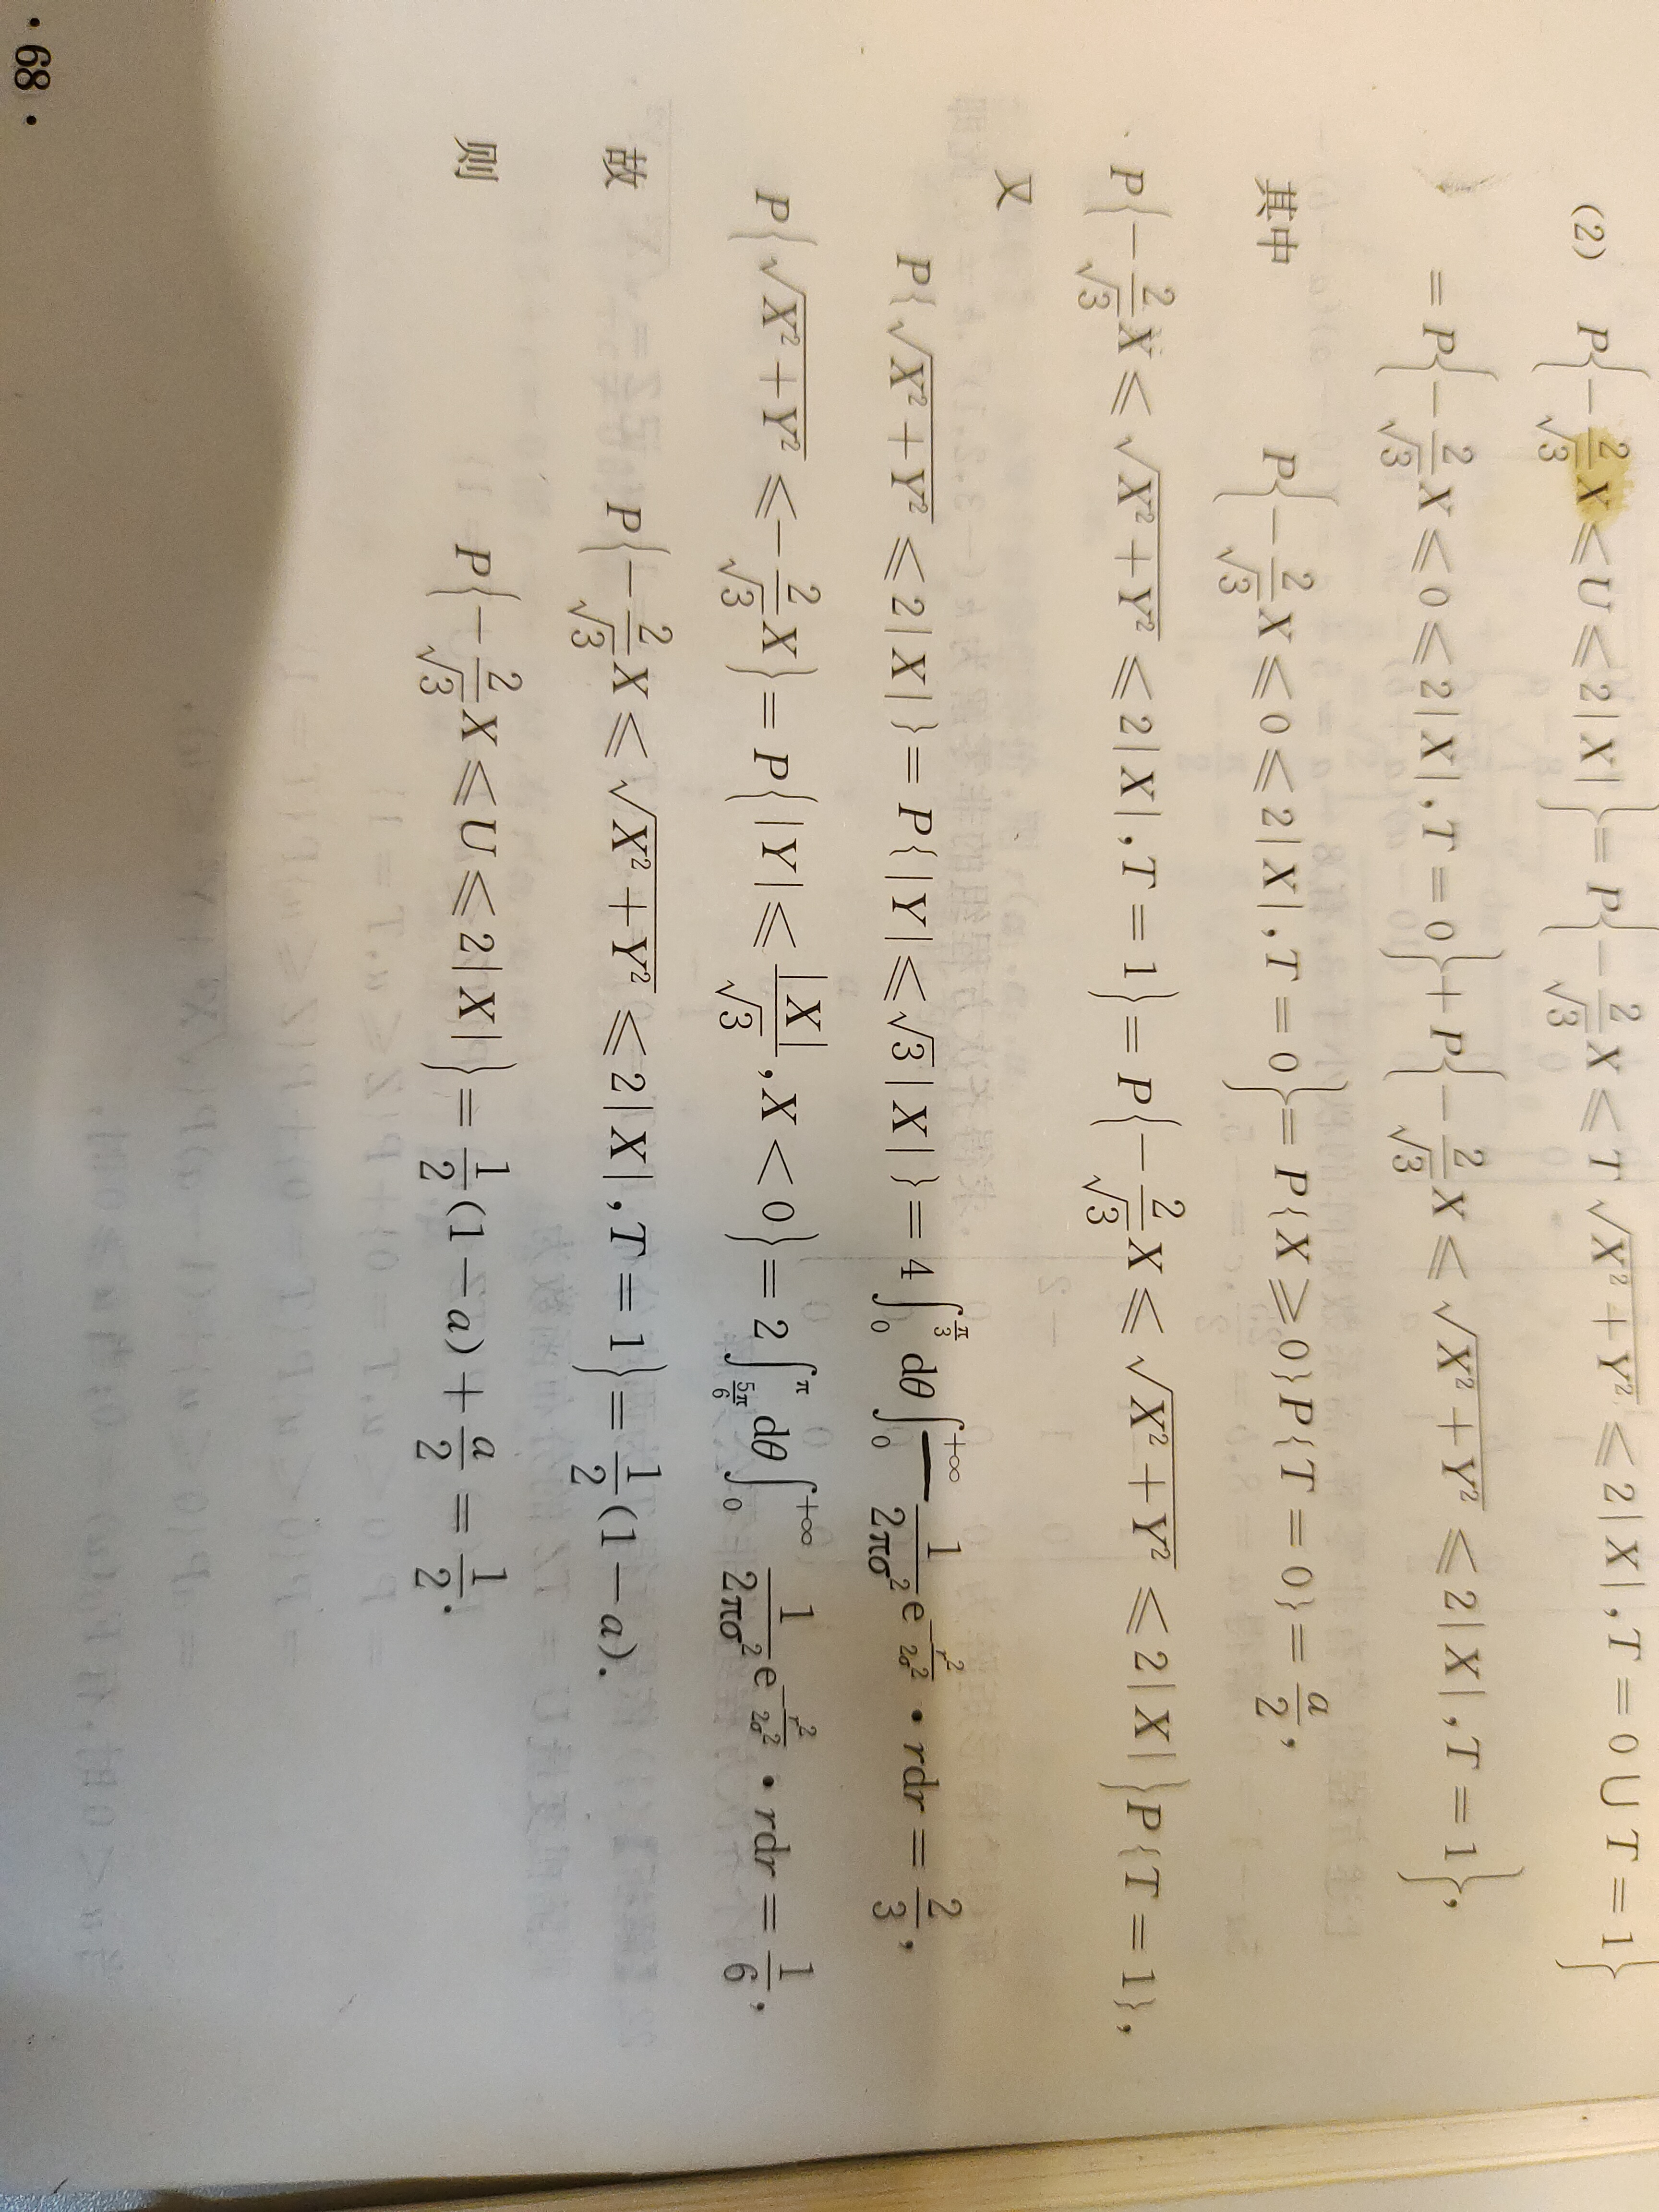 (2) P{-\frac{2}{\sqrt{3}}X≤U≤2|X|}=P{-\frac{2}{\sqrt{3}}X≤T\sqrt{X²+Y²}≤2|X|,T=0∪T=1}
=P{-\frac{2}{\sqrt{3}}X≤0≤2|X|,T=0}+P{-\frac{2}{\sqrt{3}}X≤\sqrt{X²+Y²}≤2|X|,T=1},
其中 P{-\frac{2}{\sqrt{3}}X≤0≤2|X|,T=0}=P{X≥0}P{T=0}=\frac{a}{2},
P{-\frac{2}{\sqrt{3}}X≤\sqrt{X²+Y²}≤2|X|,T=1}=P{-\frac{2}{\sqrt{3}}X≤\sqrt{X²+Y²}≤2|X|}P{T=1},
又
P{\sqrt{X²+Y²}≤2|X|}=P{|Y|≤\sqrt{3}|X|}=4\int_{0}^{\frac{π}{3}}dθ\int_{0}^{+∞}\frac{1}{2πσ²}e^{-\frac{r²}{2σ²}}·rdr=\frac{2}{3},
P{\sqrt{X²+Y²}≤-\frac{2}{\sqrt{3}}X}=P{|Y|≤\frac{|X|}{\sqrt{3}},X<0}=2\int_{\frac{5π}{6}}^{π}dθ\int_{0}^{+∞}\frac{1}{2πσ²}e^{-\frac{r²}{2σ²}}·rdr=\frac{1}{6},
故 P{-\frac{2}{\sqrt{3}}X≤\sqrt{X²+Y²}≤2|X|,T=1}=\frac{1}{2}(1-a).
则 P{-\frac{2}{\sqrt{3}}X≤U≤2|X|}=\frac{1}{2}(1-a)+\frac{a}{2}=\frac{1}{2}.
·68·